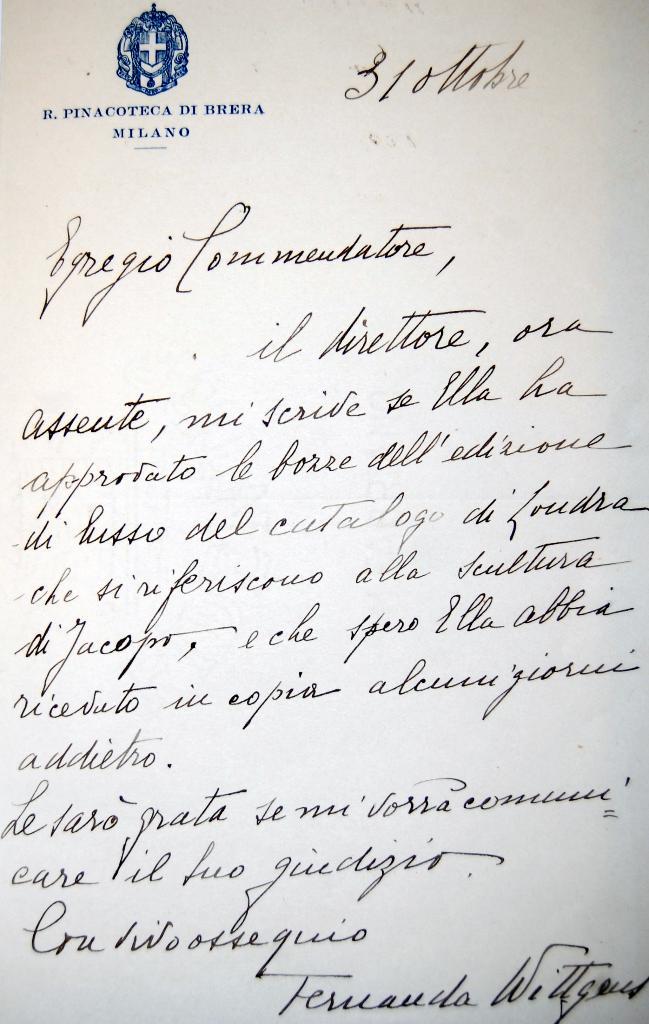 R. PINACOTECA DI BRERA
MILANO
31 ottobre
Egregio Commendatore,
il direttore, ora
assente, mi scrive se Ella ha
approvato le bozze dell'edizione
di lusso del catalogo di Londra
che si riferiscono alla scultura
di Jacopo, e che spero Ella abbia
ricevuto in copia alcuni giorni
addietro.
Le sarò grata se mi vorrà comuni=
care il suo giudizio.
Con vivo ossequio
Fernanda Wittgens